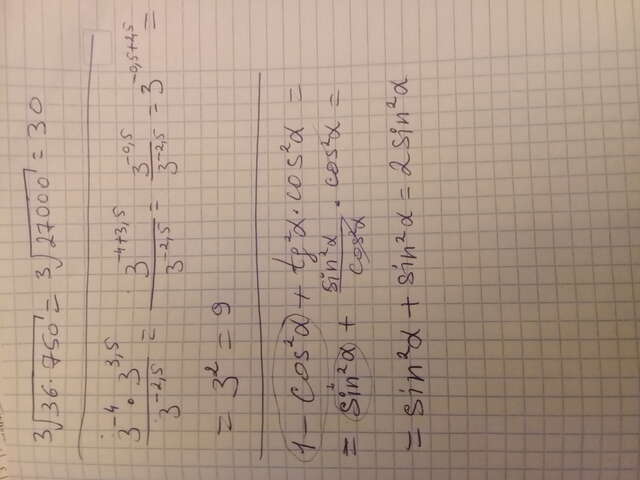 ∛36·750 = ∛27000 = 30
3⁻⁴·3^3,5 / 3^-2,5 = 3^-4+3,5 / 3^-2,5 = 3^-0,5 / 3^-2,5 = 3^-0,5+2,5 =
= 3² = 9
1 - cos²α + tg²α·cos²α =
= sin²α + sin²α / cos²α · cos²α =
= sin²α + sin²α = 2sin²α